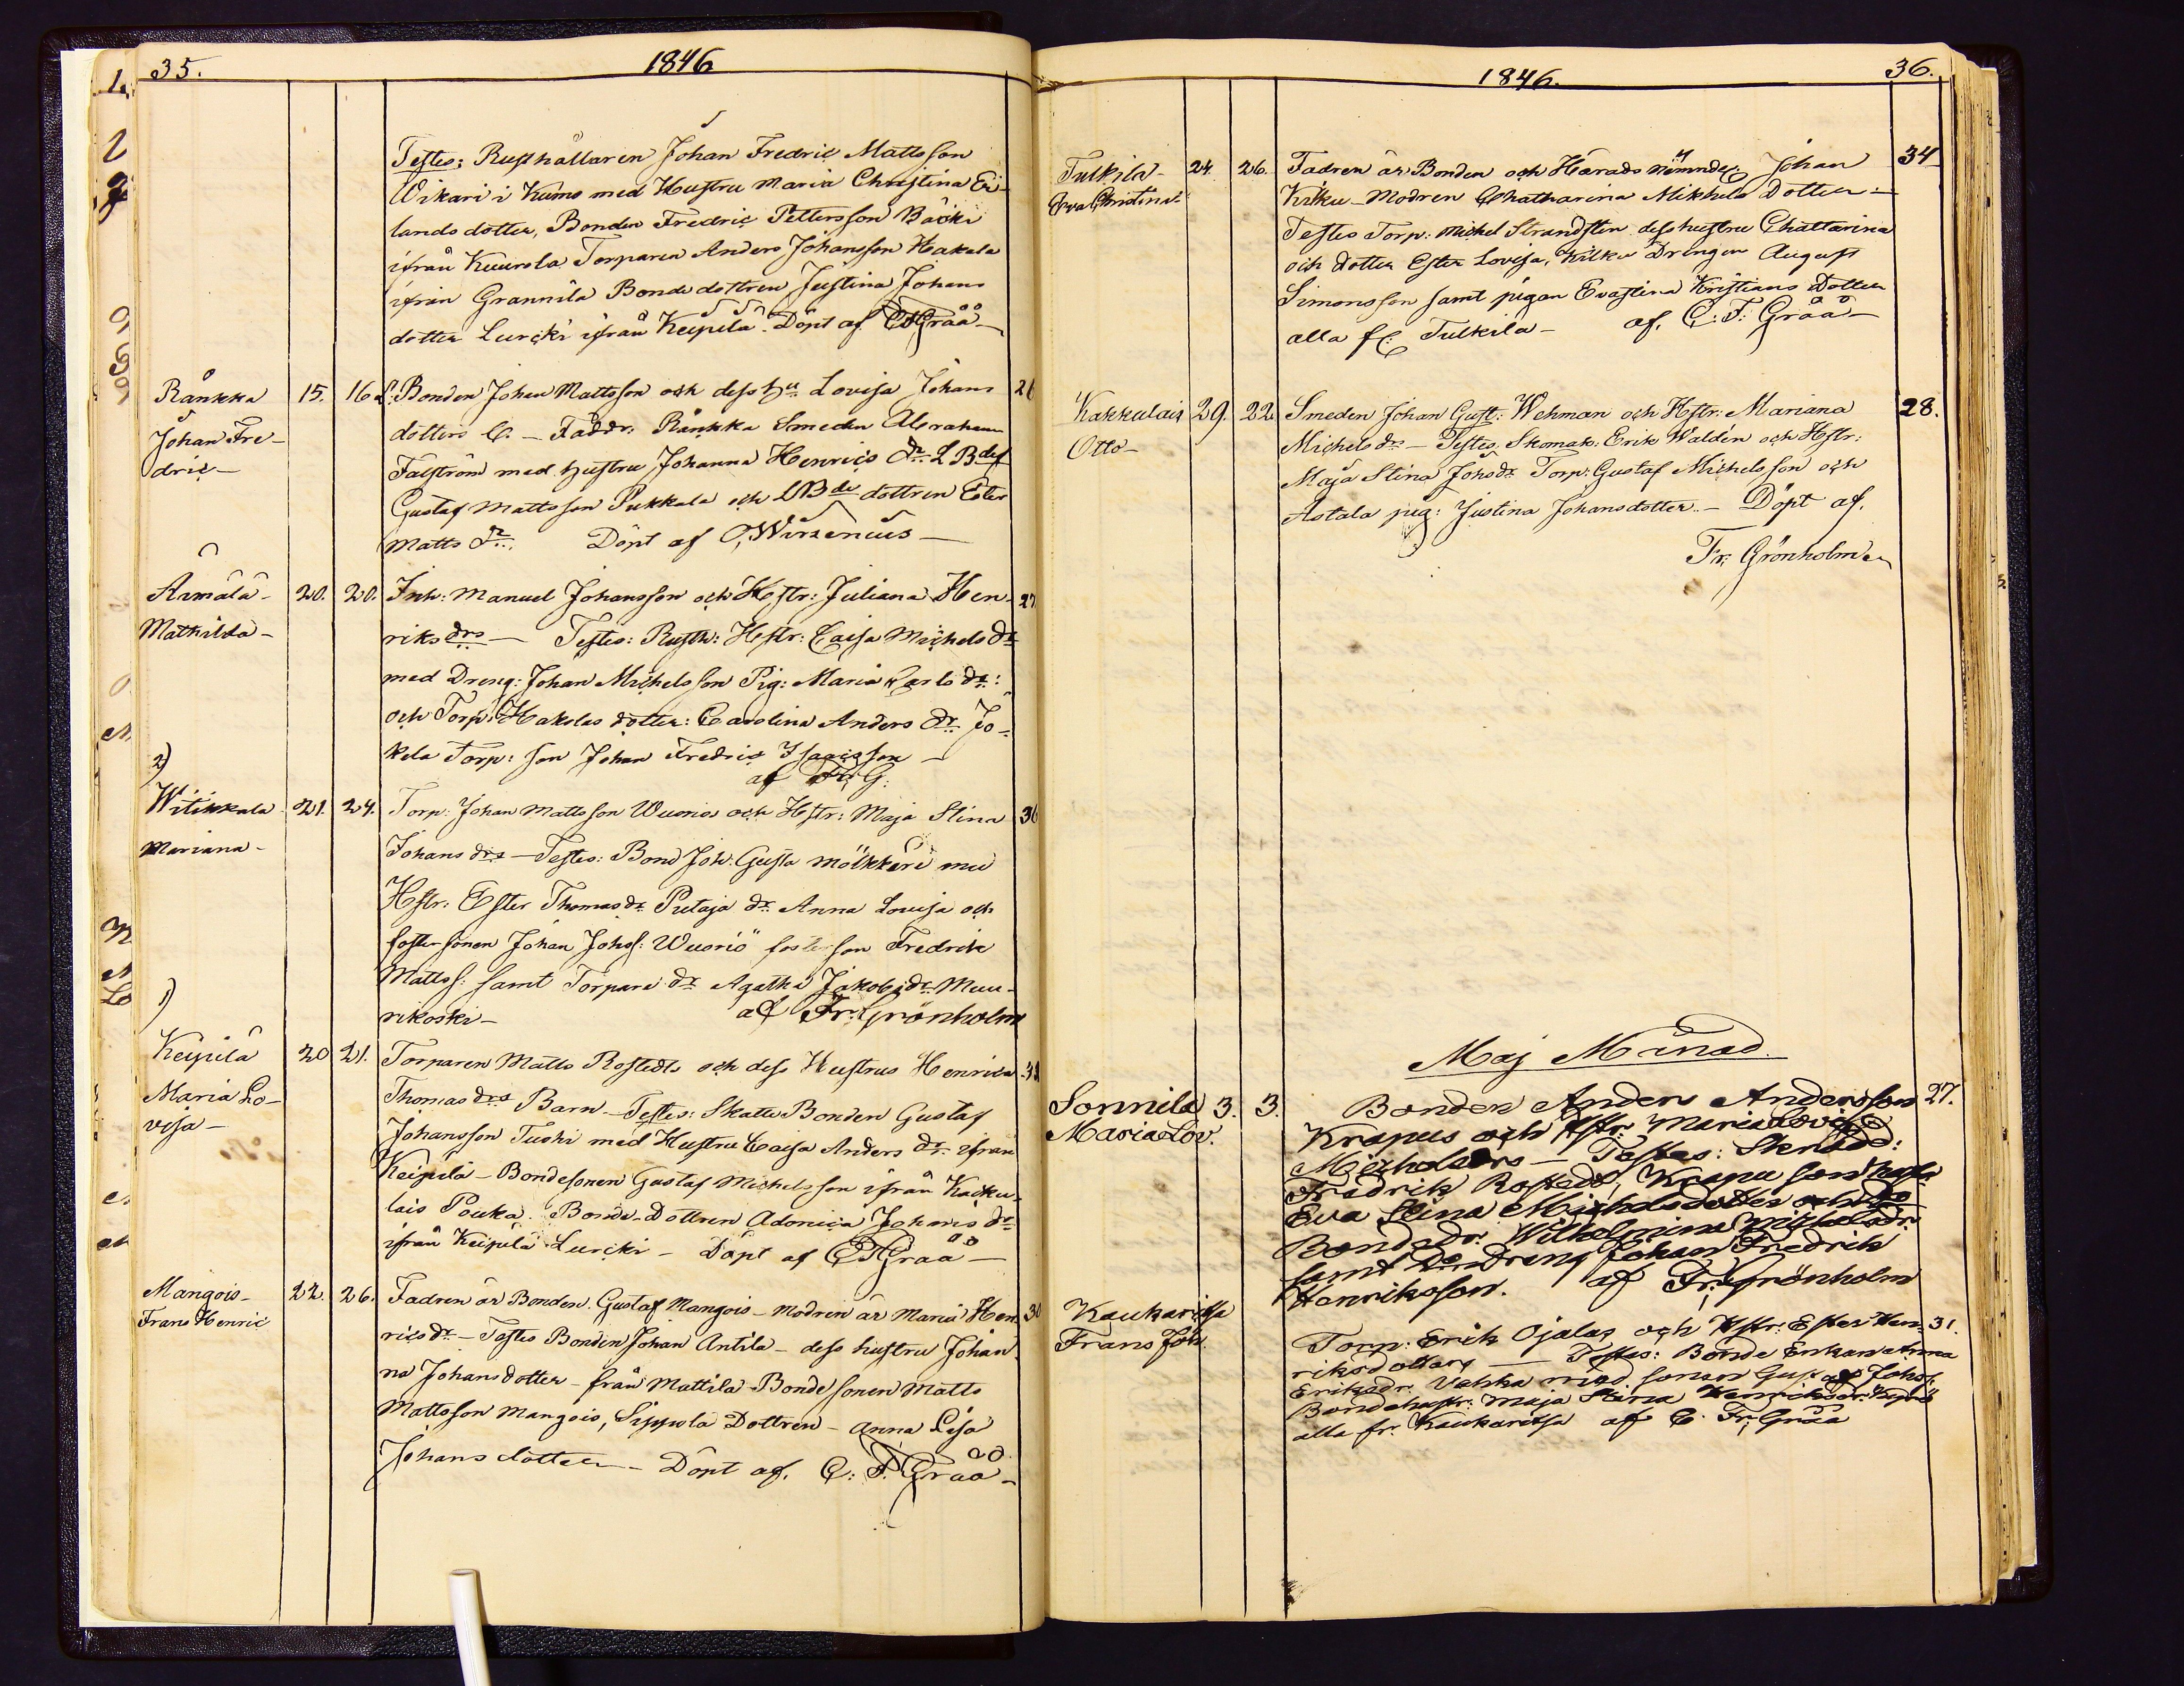 35. 1846
Testes: Rusthållaren Johan Fredric Mattsson
Wikari i Kumo med Hustru Maria Christina Er-
lands dotter, Bonden Fredric Pettersson Bäcki
ifrån Kuurola Torparen Anders Johansson Hakala
ifrån Grannila Bonde dottren Justina Johans
dotter Lurcki ifrån Keipilä. Döpt af CFGråå
Ränkka 15. 16 Bonden Johan Mattsson och dess Hu Lovisa Johans 26
Johan Fre- dotters b. Faddr: Ränkka Smeden Abraham
dric Falström med hustru Johanna Henrics dr
Gustaf Mattsson Pukkala och dottren Ester
Matts dr. Döpt af O, Wirzenius
Äimälä 20. 20. Inh: Manuel Johansson och Hstr: Juliana Hen- 27
Mathilda riks drs Testes: Rusth: Hstr: Caisa Michels dr
med Dreng: Johan Michelsson Pig: Maria Carls dr:
och Torp: Hakolas dotter: Carolina Anders dr Jo-
kela Torp: son Johan Fredric Isacsson
af Fr: G:
2)
Witikkala 21. 24. Torp. Johan Mattsson Wuorios och Hstr: Maja Stina 36
Mariana Johans drs Testes: Bond Joh. Gusta Mölkkäri med
Hstr: Ester Thomas dr Putaja dr Anna Lovisa och
fostersonen Johan Johs: Wuorio fosterson Fredrik
Mattss: samt Torpare dr Agatha Jakobs dr Muu-
rikoski af Fr: Grönholm
1)
Keipilä 20 21. Torparen Matts Rostedts och dess Hustrus Henrica 31
Maria Lo- Thomas drs Barn. Testes: Skatte Bonden Gustaf
visa Johansson Tuski med Hustru Caisa Anders dr ifrån
Keipilä Bondesonen Gustaf Michelsson ifrån Kakku-
lais Pouka. Bonde-Dottren Adonica Johans dr
ifrån Keipilä Lurcki Döpt af CFGråå
Mangois 22. 26. Fadren är Bonden Gustaf Mangois modren är Maria Hen- 30
Frans Henric rics dr Testes Bonden Johan Antila dess hustru Johan-
na Johansdotter från Mattila Bonde sonen Matts
Mattsson Mangois, Sippola Dottren Anna Lisa
Johans dotter Döpt af. C: F. Gråå
1846. 36.
Tulkila 24. 26. Fadren är Bonden och Härads nämndem Johan 34
Eva Christina Kilku Modren Chatharina Mikhels Dotter
Testes Torp: Michel Strandsten dess hustru Chattarina
och dotter Ester Lovisa, Kilku Drengen August
Simonsson samt pigan Evastina Kristians Dotter
alla fr: Tulkila af. C: F: Gråå
Kakkulais 29. 22. Smeden Johan Gust: Wehman och Hstr: Mariana 28.
Otto Michels dr Testes, Skomak: Erik Waldén och Hstr:
Maja Stina Johsdr Torp: Gustaf Michelsson och
Astala pig: Justina Johansdotter Döpt af.
Fr: Grönholm
Maj Månad.
Sonnila 3. 3. Bonden Anders Andersson 27.
Maria Lov. Krapus och Hstr: Maria Lovisa
Michelsdrs Testes: Skrädd:
Fredrik Rostedt, Krapu son
Eva Stina Michelsdotter och
Bondedr: Wilhelmina Michelsdr:
samt Dreng Johan Fredrik
Henriksson. af Fr: Grönholm
Kaukaritsa Torp: Erik Ojalas och Hstr: Ester Hen- 31.
Frans Joh. riksdotters Testes: Bonde Enkan Anna
Eriksdr. Vahka med sonen Gustaf Johs:
Bondehustr: Maja Stina Henriksdr:
alla fr. Kaukaritsa af C. Fr: Gråå